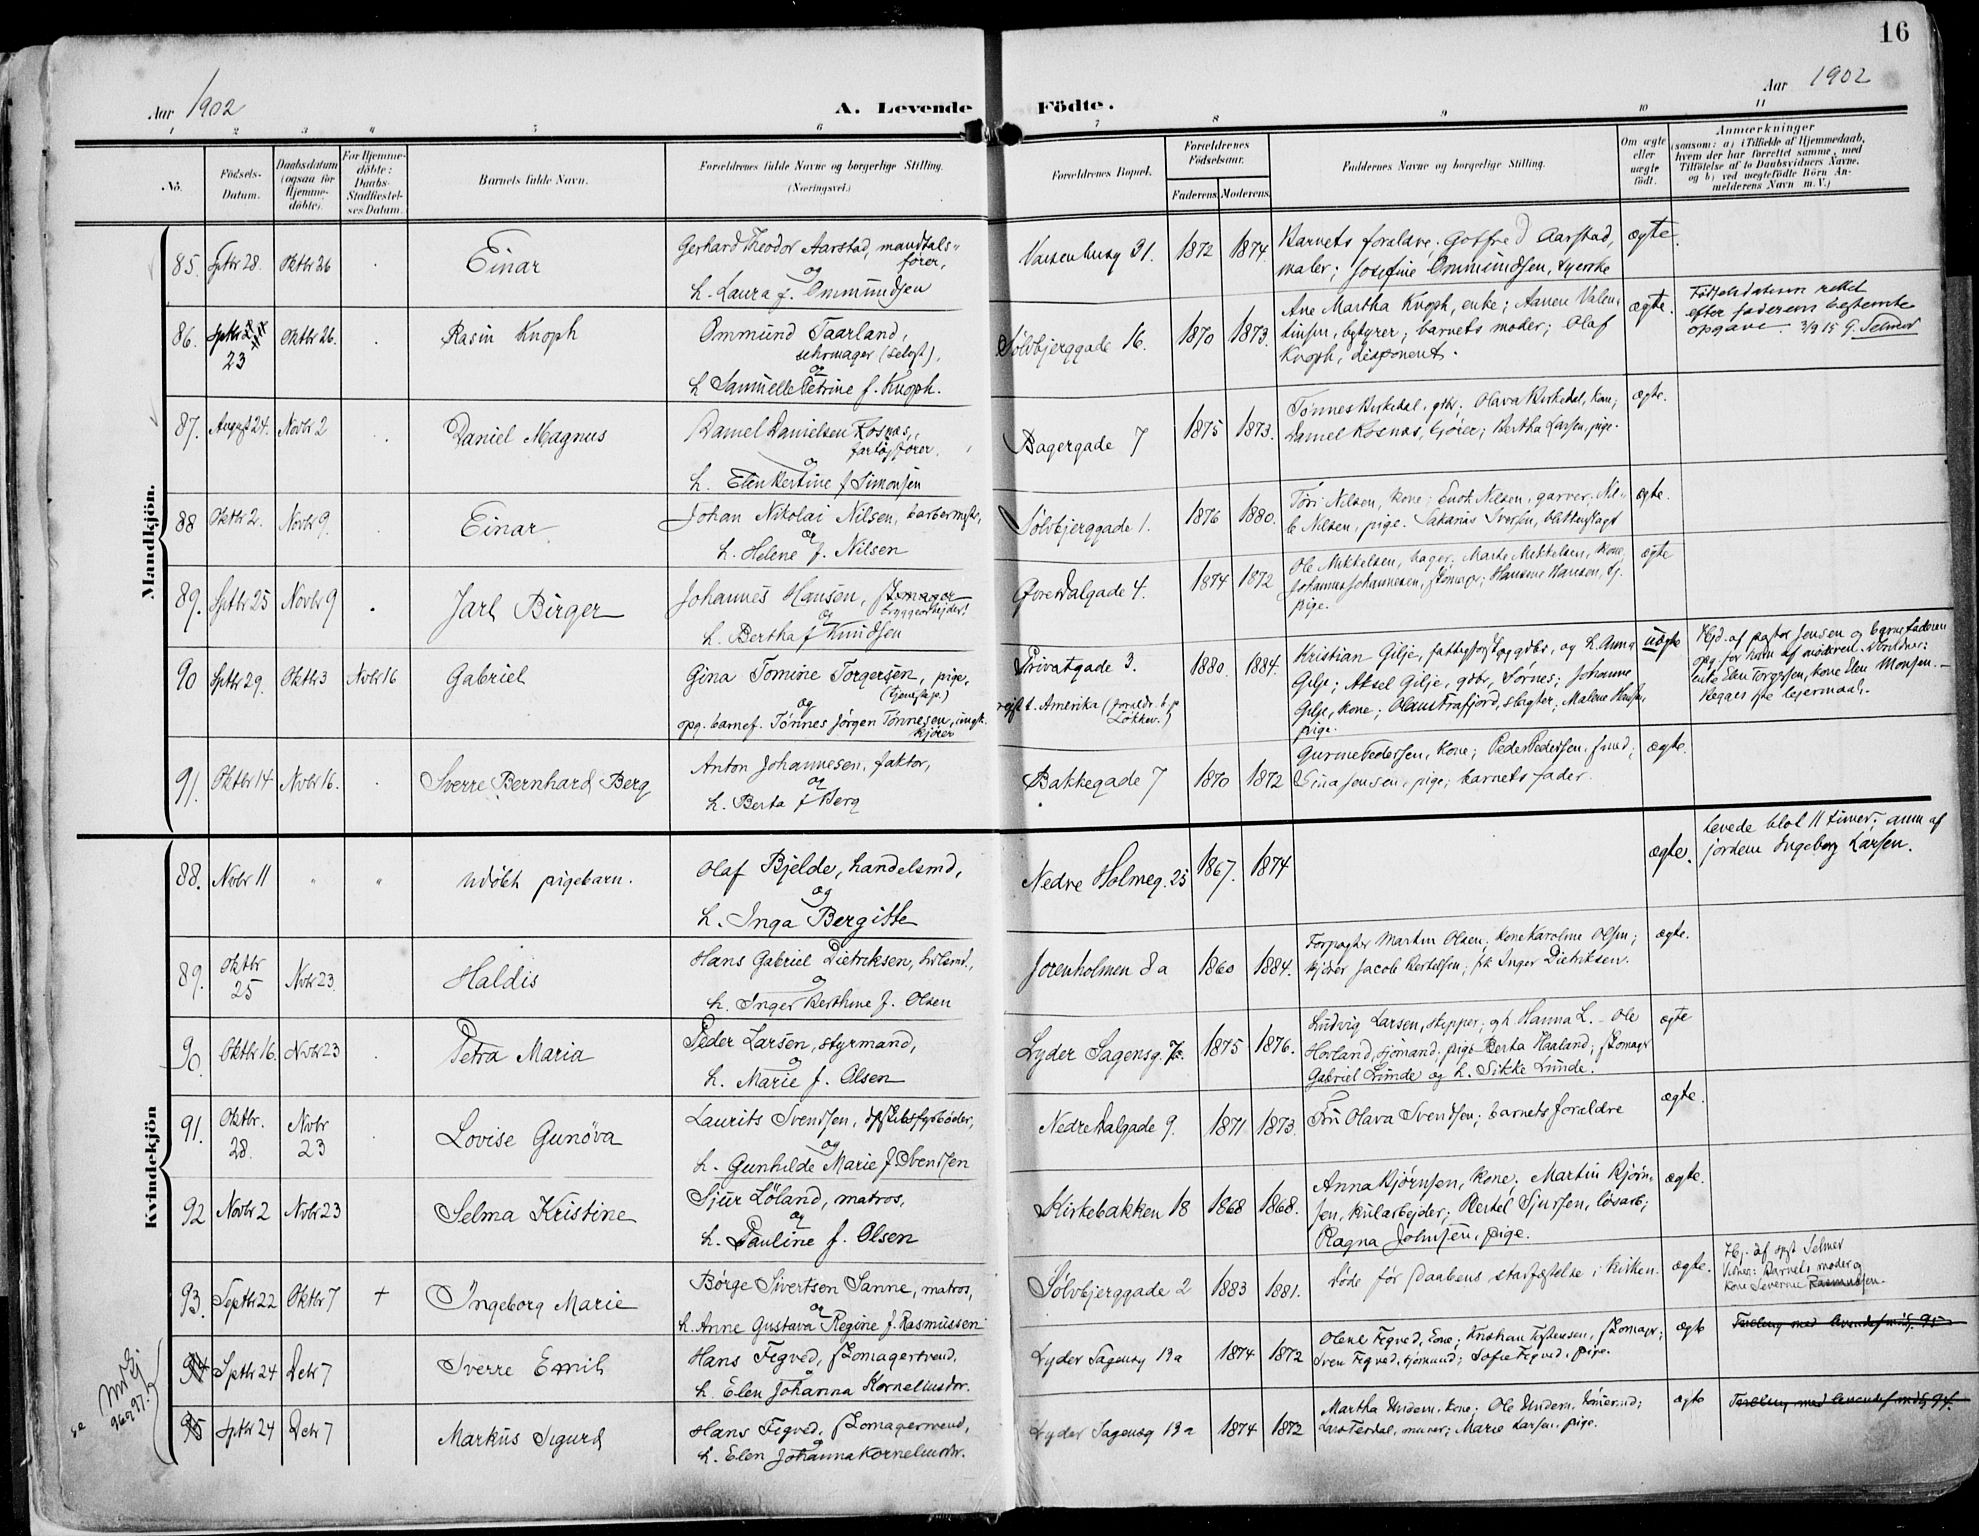 16
Aar 1902
A. Levende Födte.
Aar 1902
1 2 3 4 5 6 7 8 9 10 11
No.
Födsels-Datum.
Daabsdatum (ogsaa for Hjemme-döbte).
For Hjemme-döbte: Daabs-Stadfæstel-ses Datum.
Barnets fulde Navn.
Forældrenes fulde Navne og borgerlige Stilling. (Næringsvei.)
Forældrenes Bopæl.
Forældrenes Födselsaar.
Faderens Moderens
Faddernes Navne og borgerlige Stilling.
Om ægte eller uægte født.
Anmærkninger
(saasom: a) i Tilfælde af Hjemmedaab, hvem der har forrettet samme, med Tilföielse af to Daabsvidners Navne, og b) ved uægtefödte Börn An-melderens Navn m. V.)
Mandkjön.
85. Sptbr 28. Oktbr 26 Einar
Gerhard Theodor Aarstad, mandtals-
fører,
og
h. Laura f. Ommundsen
31. 1872 1874.
Barnets forældre; Gotfred Aarstad,
maler; Josefine Ommundsen, syerske
ægte.
86. Sptbr 23 Oktbr 26. Rasin Knoph
Ommund Taarland,
skomager (selvst),
og
h. Samuelle Petrine f. Knoph.
Sølvbjerggade 16. 1870 1873.
Ane Martha Knoph, enke; Aanen Valen-
tinsen, bestyrer; barnets moder; Olaf
Knoph, disponent.
ægte.
Fødselsdatum rettet
efter faderens bestemte
opgave. 3/9 15 G. Selmer
87. August 24. Novbr 2 Daniel Magnus
Daniel Danielsen Kosnas,
fartøjfører.
og
h. Elen Bertine f Simonsen
Bagergade 7 1875 1873.
Tønnes Birkedal, gbr; Olava Birkedal, kone;
Daniel Kosnas, kjører; Bertha Larsen, pige.
ægte.
88 Oktbr 2. Novbr 9. Einar
Johan Nikolai Nilsen, barbermstr,
og
h. Helene f. Nilsen
Sølvbjerggade 1. 1876 1880.
Tori Nilsen, kone; Enok Nilsen, garver; Nil-
Nilsen, pige. Sakarias Iversen,
ægte.
89. Sptbr 25 Novbr 9 Jarl Birger
Johannes Hansen, skomager
bryggearbejder!
og
h. Bertha f Knudsen
Øvre Dalgade 4. 1874 1872
Ole Mikkelsen, bager; Marte Mikkelsen, kone,
Johannes Johannesen, skomagr; Hansine Hansen,
pige.
ægte
90 Sptbr 29. Oktbr 3 Novbr 16 Gabriel
Gina Tomine Torgersen, pige,
(tjenestep.)
og
opg. barnef. Tønnes Jørgen Tønnesen, ungk.
kjører
Privatgade 3. 1880. 1884.
rejst t. Amerika (foreldr. b p
Løkkev.)
Kristian Gilje, og h. Anna
Gilje; Aksel Gilje, gdbr, Sørnes; Johanne
Gilje, kone; Olaus Frafjord, slagter; Malene Hansen,
pige.
uægte
Hjd. af pastor Jensen og barnefaderen
opg. for ham af moderen. Vidner:
enke Elen Torgersen, kone Elen Monsen. —
Begges 1ste lejermaal.
91. Oktbr 14 Novbr 16. Sverre Bernhard Berg
Anton Johannesen, faktor,
og
h. Berta f Berg
Bakkegade 7 1870 1872
Gurine Pedersen, kone; Peder Pedersen, smed;
Gina Jensen, pige; barnets fader.
ægte.
Kvindekjön
88. Novbr 11 " " Udøbt pigebarn.
Olaf Bjelde, handelsmd,
og
h. Inga Bergitte
Nedre Holmeg. 25 1867. 1874
ægte.
Levede blot 11 timer; anm af
jordem Ingeborg Larsen.
89. Oktbr 25 Novbr 23 Haldis
Hans Gabriel Dietriksen,
og
h. Inger Berthine f. Olsen
Jorenholmen 8 a 1860 1884.
Forpagter Martin Olsen; kone Karoline Olsen;
kjører Jacob Bertelsen; frk Inger Dietriksen.
ægte.
90. Oktbr 16. Novbr 23 Petra Maria
Peder Larsen, styrmand,
og
h. Marie f. Olsen
Lyder Sagensg. 1875 1876.
Ludvig Larsen, skipper, og h. Hanna L. – Ole
Hovland, sjømand; pige Berta Haaland; skomagr
Gabriel Lunde og h. Sikke Lunde.
ægte
91. Oktbr. 28. Novbr 23 Lovise Gunøva
Laurits Svendsen, dsskibsfyrbøder,
og
h. Gunhilde Marie f Svendsen
Nedre Dalgade 9. 1871 1873.
Fru Olava Svendsen; barnets forældre
ægte.
92 Novbr 2 Novbr 23 Selma Kristine
Sjur Löland, matros,
og
h. Pauline f. Olsen
Kirkebakken 18 1868 1868.
Anna Bjørnsen, kone; Martin Bjørn-
sen, kularbejder; Bertel Sjursen, løsarb;
Ragna Johnsen, pige.
ægte.
93. Septbr 22 Oktbr 7 + Ingeborg Marie
Børge Sivertsen Sanne, matros,
og
h. Anne Gustava Regine f. Rasmussen
Sølvbjerggade 2 1883 1881.
Døde før daabens stadfæstelse i kirken.
ægte.
Hj. af spst Selmer
Vidner: Barnets moder og
kone Severine Rasmussen.
94 Sptbr 24 Dcbr 7 Sverre Emil
Hans Tegved, skomagersvend,
og
h. Elen Johanna Korneliusdtr.
Lyder Sagensg 19a 1874 1872
Olene Tegved, kone; Kristian skomagr;
Sven Tegved, sjømand; Sofie Tegved, pige.
ægte
Tvilling med levendef mdkj. 95
95 Sptbr 24 Dcbr 7 Markus Sigurd
Hans Tegved, skomagersvend,
og
h. Elen Johanna Korneliusdtr.
Lyder Sagensg 19a 1874 1872
Martha Undem, kone; Ole Undem, tømrmd;
Lars Terdal, murer; Marie Larsen, pige.
ægte
Tvilling med levendef mdkj 94.
96 og 97.